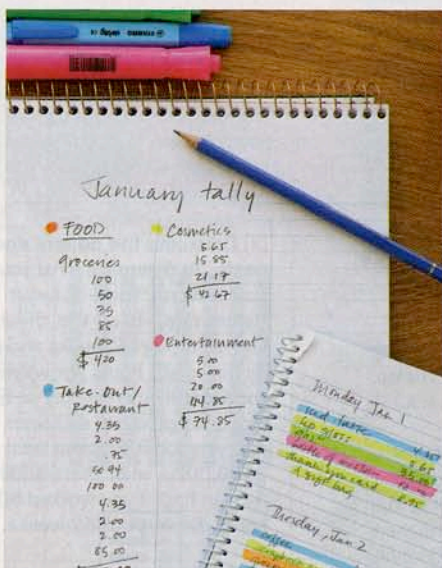 January tally
FOOD
groceries
100
50
35
85
100
$ 420
Take-out/
restaurant
4.35
2.00
.75
50.94
100.00
4.35
2.00
2.00
85.00
Cosmetics
5.65
15.85
21.17
$ 42.67
Entertainment
5.00
5.00
20.00
44.85
$ 74.85
Monday Jan 1
iced latte 4.35
lip gloss 5.65
thank you card
Thursday, Jan 2
coffee